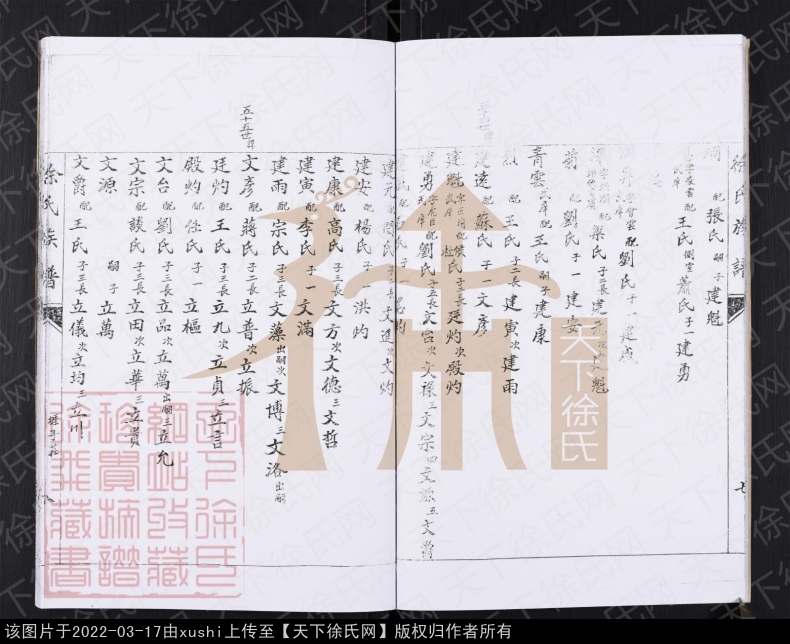 徐氏族譜
配張氏 嗣子建魁
配王氏 側室蕭氏子一建勇
配劉氏 子一建成
菊 配劉氏 子一建安
青雲 配王氏 嗣子建康
配王氏 子二長建寅次建雨
建逵 配蘇氏 子一文彥
建魁 氏子二長廷灼次殿灼
建勇 配劉氏 子五長文台次文祿三文宗四文源五文爵
七
五十五世
建安 配楊氏 子一洪灼
建康 配高氏 子三長文方次文德三文哲
建寅 配李氏 子一文滿
建雨 配宗氏 子三長文藻出嗣次文博三文洛出嗣
文彥 配蔣氏 子二長立普次立振
廷灼 配王氏 子三長立九次立貞三立言
殿灼 配任氏 子一立樞
文台 配劉氏 子三長立品次立萬出嗣三立允
文宗 配談氏 子三長立田次立華三立貴
文源 嗣子立萬
文爵 配王氏 子三長立儀次立均三立川
徐氏族譜
天下徐氏
天下徐氏网
该图片于2022-03-17由xushi上传至【天下徐氏网】版权归作者所有